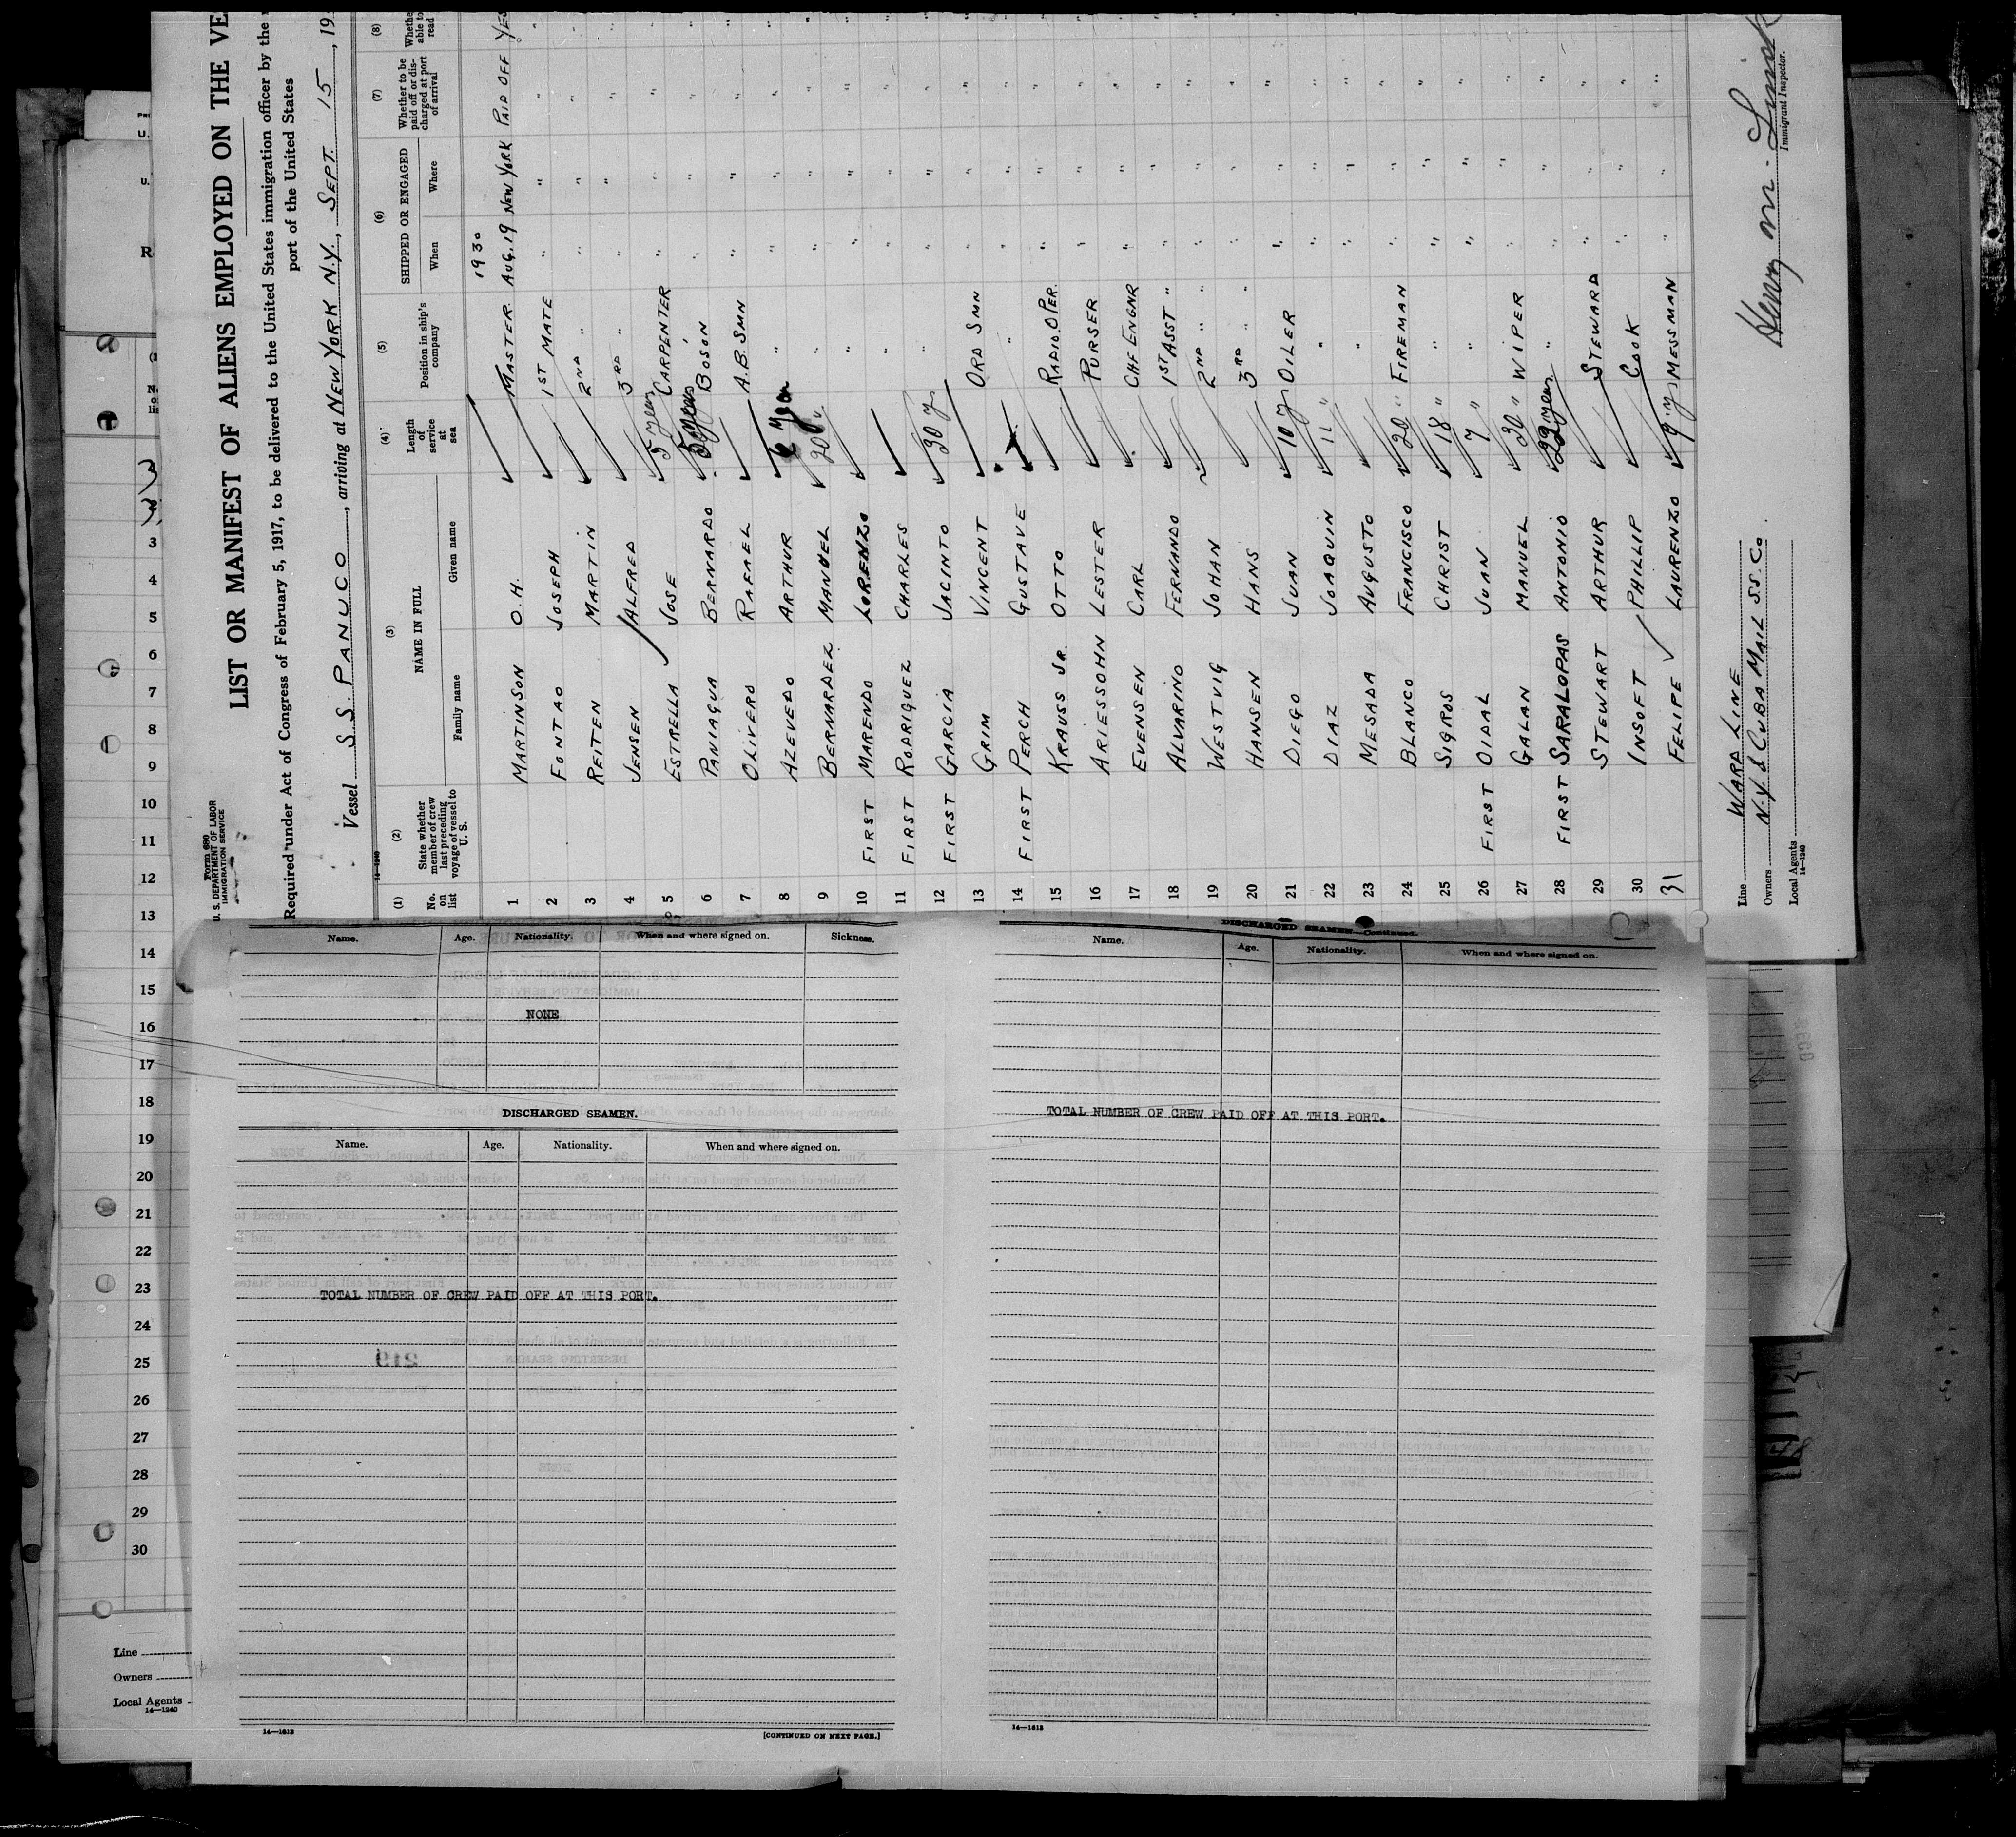 Form 680
U. S. DEPARTMENT OF LABOR
IMMIGRATION SERVICE
LIST OR MANIFEST OF ALIENS EMPLOYED ON THE VE
Required under Act of Congress of February 5, 1917, to be delivered to the United States immigration officer by the
port of the United States
Vessel S. S. PANUCO, arriving at NEW YORK N.Y., SEPT. 15, 19
14-1240
(1) (2) (3) (4) (5) (6) (7) (8)
No. on list
State whether member of crew last preceding voyage of vessel to U. S.
NAME IN FULL
Family name Given name
Length of service at sea
Position in ship's company
SHIPPED OR ENGAGED
When Where
Whether to be paid off or discharged at port of arrival
Whether able to read
1930
1 MARTINSON O. H. MASTER AUG. 19 NEW YORK PAID OFF YES
2 FONTAO JOSEPH 1ST MATE " " "
3 REITEN MARTIN 2ND " " " "
4 JENSEN ALFRED 3RD " " " "
5 ESTRELLA JOSE 5 years CARPENTER " " "
6 PANIAQUA BERNARDO 5 years BOSON " " "
7 OLIVERO RAFAEL A.B. SMN " " "
8 AZEVEDO ARTHUR " " " "
9 BERNARDEZ MANUEL 20 y " " " "
10 FIRST MARENDO LORENZO " " " "
11 FIRST RODRIQUEZ CHARLES " " " "
12 FIRST GARCIA JACINTO 30 y " " " "
13 GRIM VINCENT ORD SMN " " "
14 FIRST PERCH GUSTAVE " " " "
15 KRAUSS JR. OTTO RADIO. OPER. " " "
16 ARIESSOHN LESTER PURSER " " "
17 EVENSEN CARL CHF ENGNR " " "
18 ALVARINO FERNANDO 1ST ASST " " " "
19 WESTVIG JOHAN 2ND " " " " "
20 HANSEN HANS 3RD " " " " "
21 DIEGO JUAN 10 y OILER " " "
22 DIAZ JOAQUIN 11 " " " " "
23 MESADA AUGUSTO " " " "
24 BLANCO FRANCISCO 20 " FIREMAN " " "
25 SIGROS CHRIST 18 " " " " "
26 FIRST OIDAL JUAN 7 " " " " "
27 GALAN MANUEL 30 " WIPER " " "
28 FIRST SARALOPAS ANTONIO 22 years " " " "
29 STEWART ARTHUR STEWARD " " "
30 INSOFT PHILLIP COOK " " "
31 FELIPE LAURENZO 9 y MESSMAN " " "
Line WARD LINE
Owners N.Y. & CUBA MAIL S.S. Co.
Local Agents
14-1240
Henry M.
Immigrant Inspector.
Name. Age. Nationality. When and where signed on. Sickness.
NONE
DISCHARGED SEAMEN.
Name. Age. Nationality. When and where signed on.
TOTAL NUMBER OF CREW PAID OFF AT THIS PORT.
14—1613
[CONTINUED ON NEXT PAGE.]
DISCHARGED SEAMEN—Continued.
Name. Age. Nationality. When and where signed on.
TOTAL NUMBER OF CREW PAID OFF AT THIS PORT.
14—1613
3
4
5
6
7
8
9
10
11
12
13
14
15
16
17
18
19
20
21
22
23
24
25
26
27
28
29
30
Line
Owners
Local Agents
14—1240